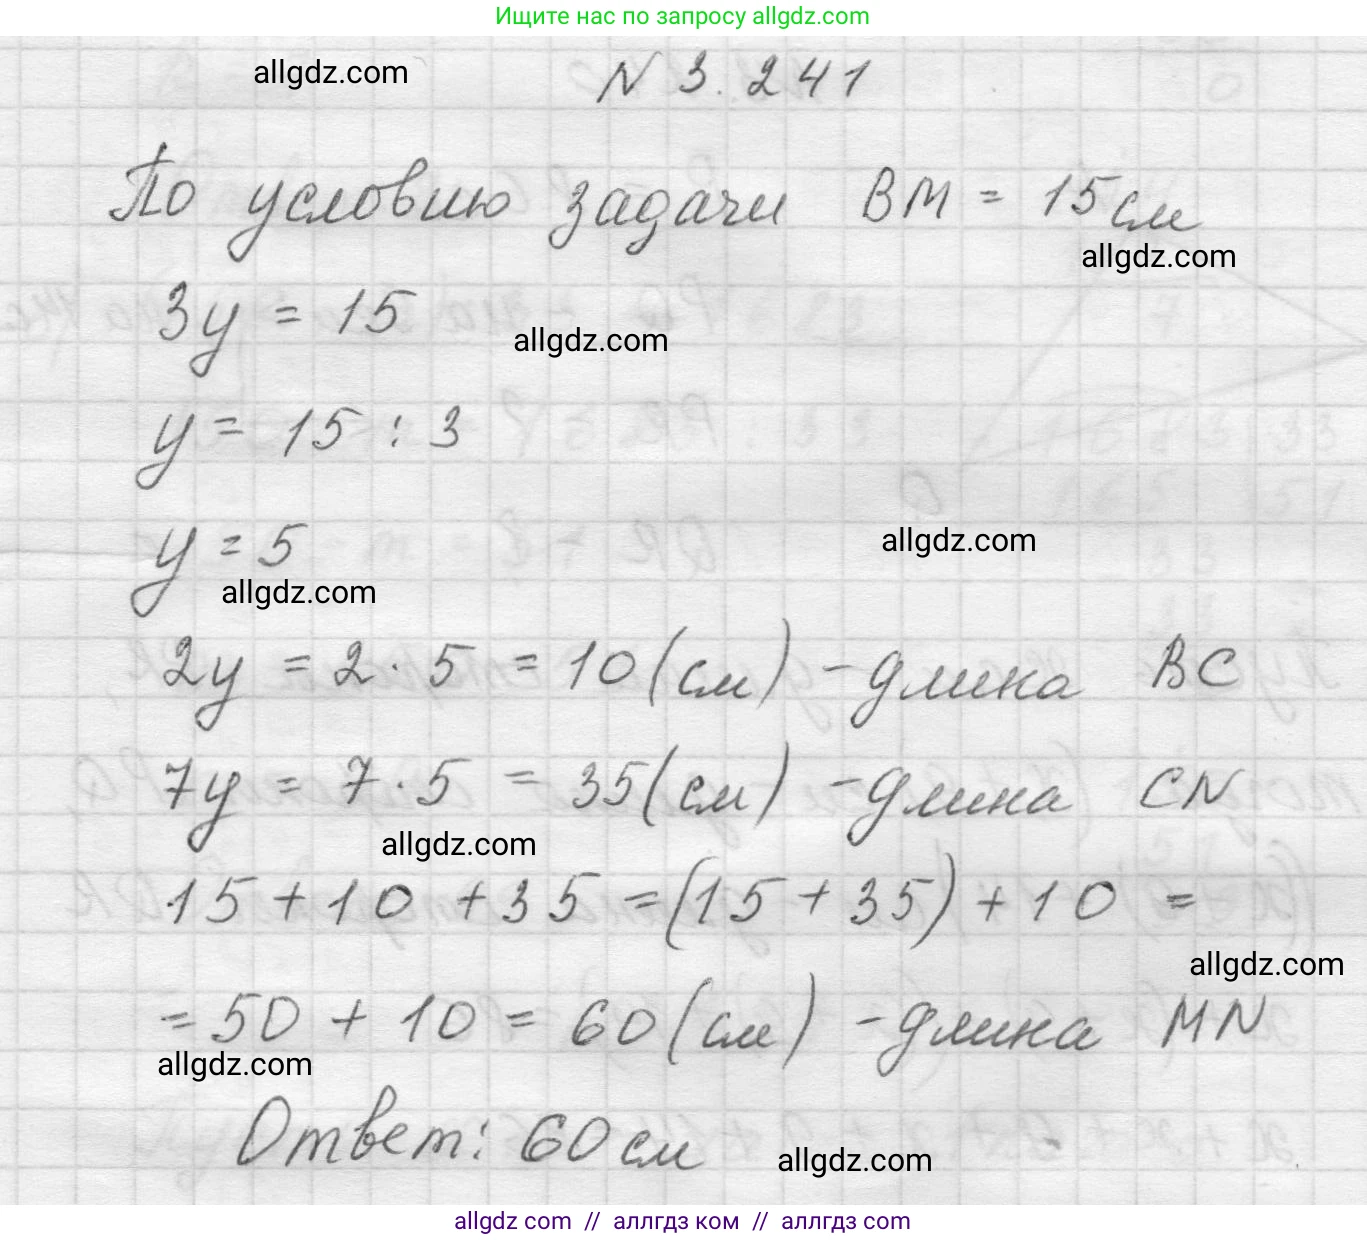 Ищите нас по запросу allgdz.com
allgdz.com
N 3.241
По условию задачи BM = 15 см
allgdz.com
3y = 15
allgdz.com
y = 15 : 3
y = 5
allgdz.com
allgdz.com
2y = 2 · 5 = 10 (см) - длина BC
7y = 7 · 5 = 35 (см) - длина CN
allgdz.com
15 + 10 + 35 = (15 + 35) + 10 =
allgdz.com
= 50 + 10 = 60 (см) - длина MN
allgdz.com
Ответ: 60 см
allgdz.com
allgdz com // аллгдз ком // аллгдз com